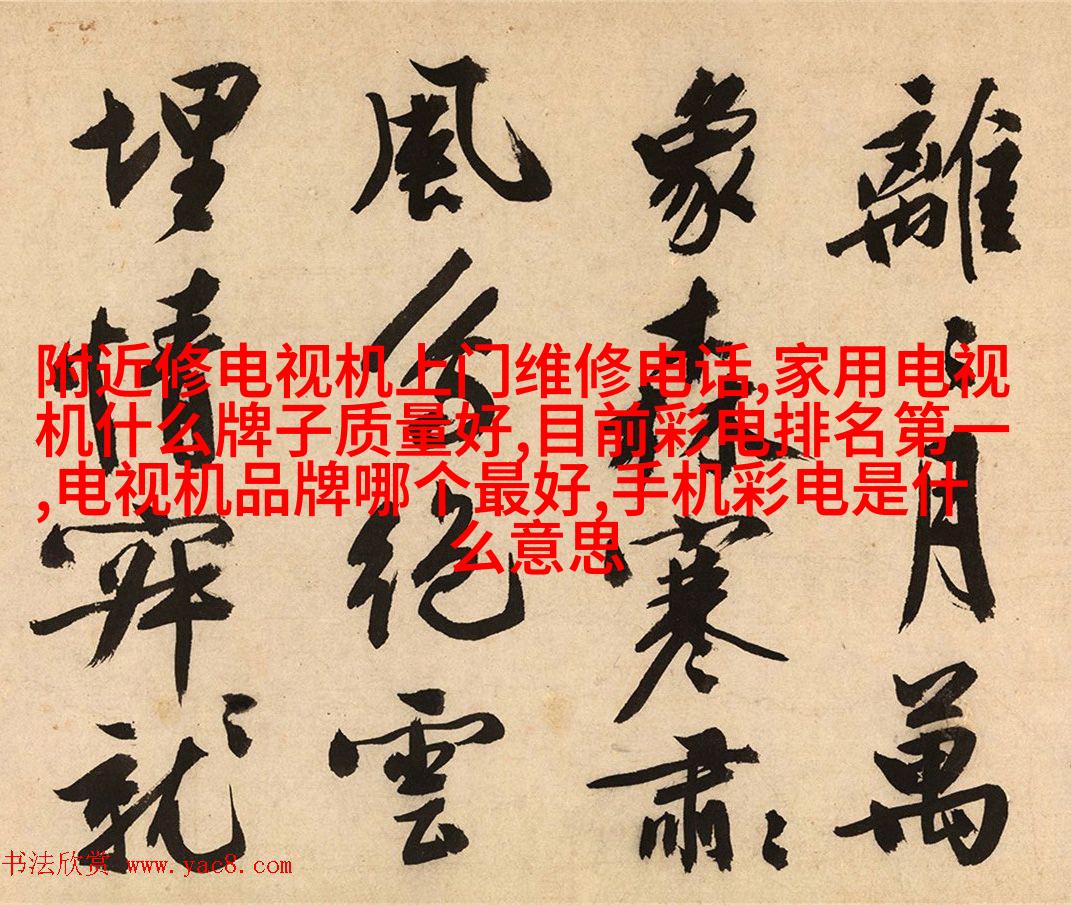 附近修电视机上门维修电话,家用电视
机什么牌子质量好,目前彩电排名第一
,电视机品牌哪个最好,手机彩电是什
么意思
離〻月萬
象森寒肅〻
風絕雲
埋情就〻
书法欣赏 www.yac8.com